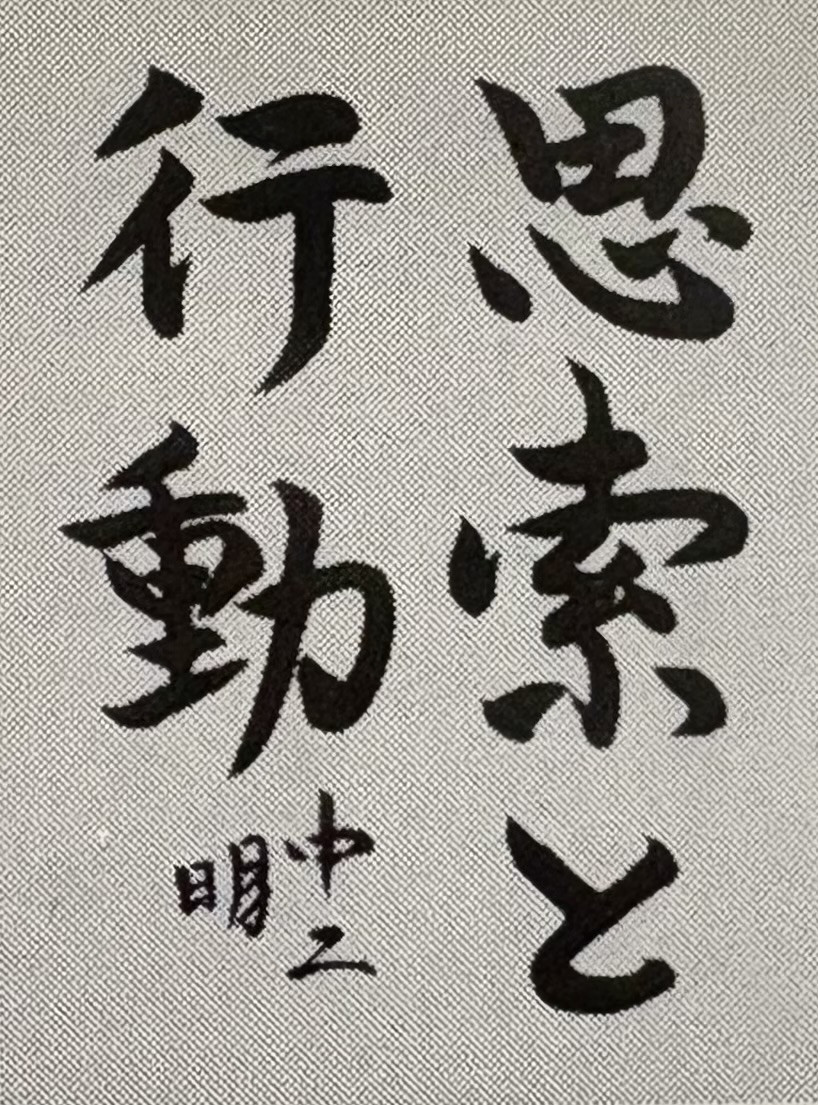 思索と
行動
中二
明